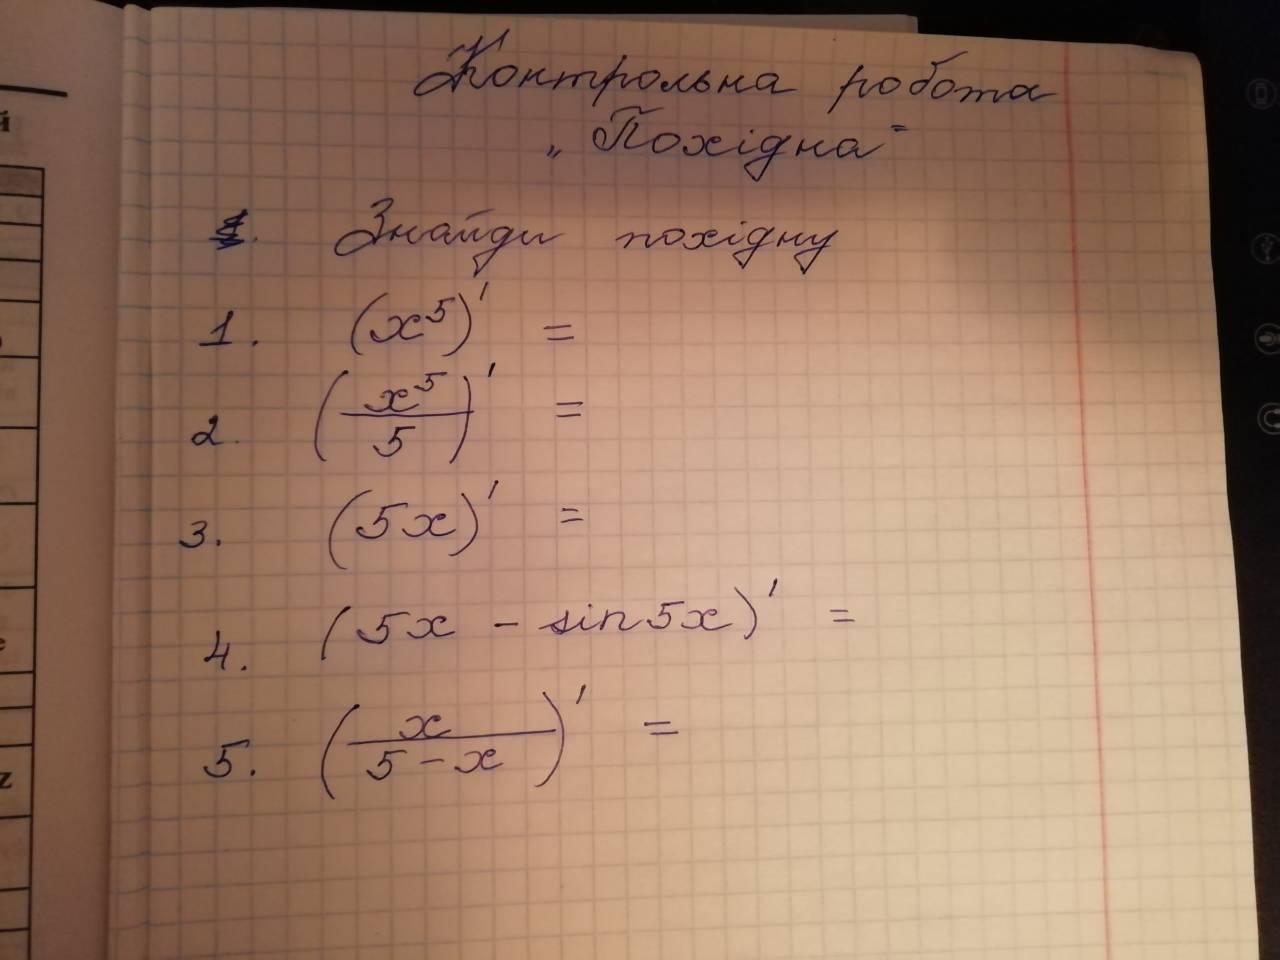 Контрольна робота
„Похідна"
Знайди похідну
1. (x⁵)' =
2. (x⁵/5)' =
3. (5x)' =
4. (5x - sin5x)' =
5. (x/(5-x))' =
й
e
z